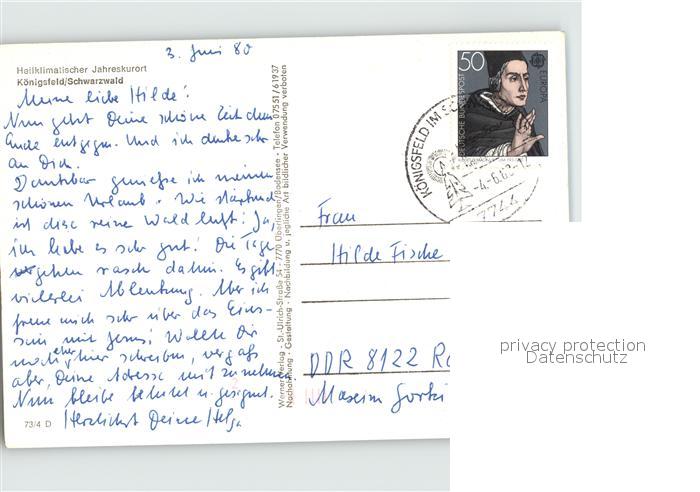 3. Juni 80
Heilklimatischer Jahreskurort
Königsfeld/Schwarzwald
Meine liebe Hilde!
Nun geht Deine schöne Zeit dem
Ende entgegen. Und ich denke sehr
an Dich.
Dankbar genieße ich meinen
schönen Urlaub. Wie stärkend
ist diese reine Waldluft! Ja,
ich liebe es sehr gut! Die Tage
vergehen rasch dahin. Es gibt
vielerlei Ablenkung. Aber ich
freue mich sehr über das Eins-
sein mit Jesus! Wollte Dir
noch eher hier schreiben, vergaß
aber, Deine Adresse mitzunehmen.
Nun bleibe behütet u. gesegnet.
Herzlichst Deine Helga
73/4 D
Werner Verlag - St.-Ulrich-Straße 54 - 7770 Überlingen/Bodensee - Telefon 07551/61937
Nachahmung - Gestaltung - Nachbildung u. jegliche Art bildlicher Verwendung verboten
50
DEUTSCHE BUNDESPOST
EUROPA
KÖNIGSFELD IM
-4.6.80-12
7744
Frau
Hilde Fische
DDR 8122 Ra
Maxim Gorki
privacy protection
Datenschutz